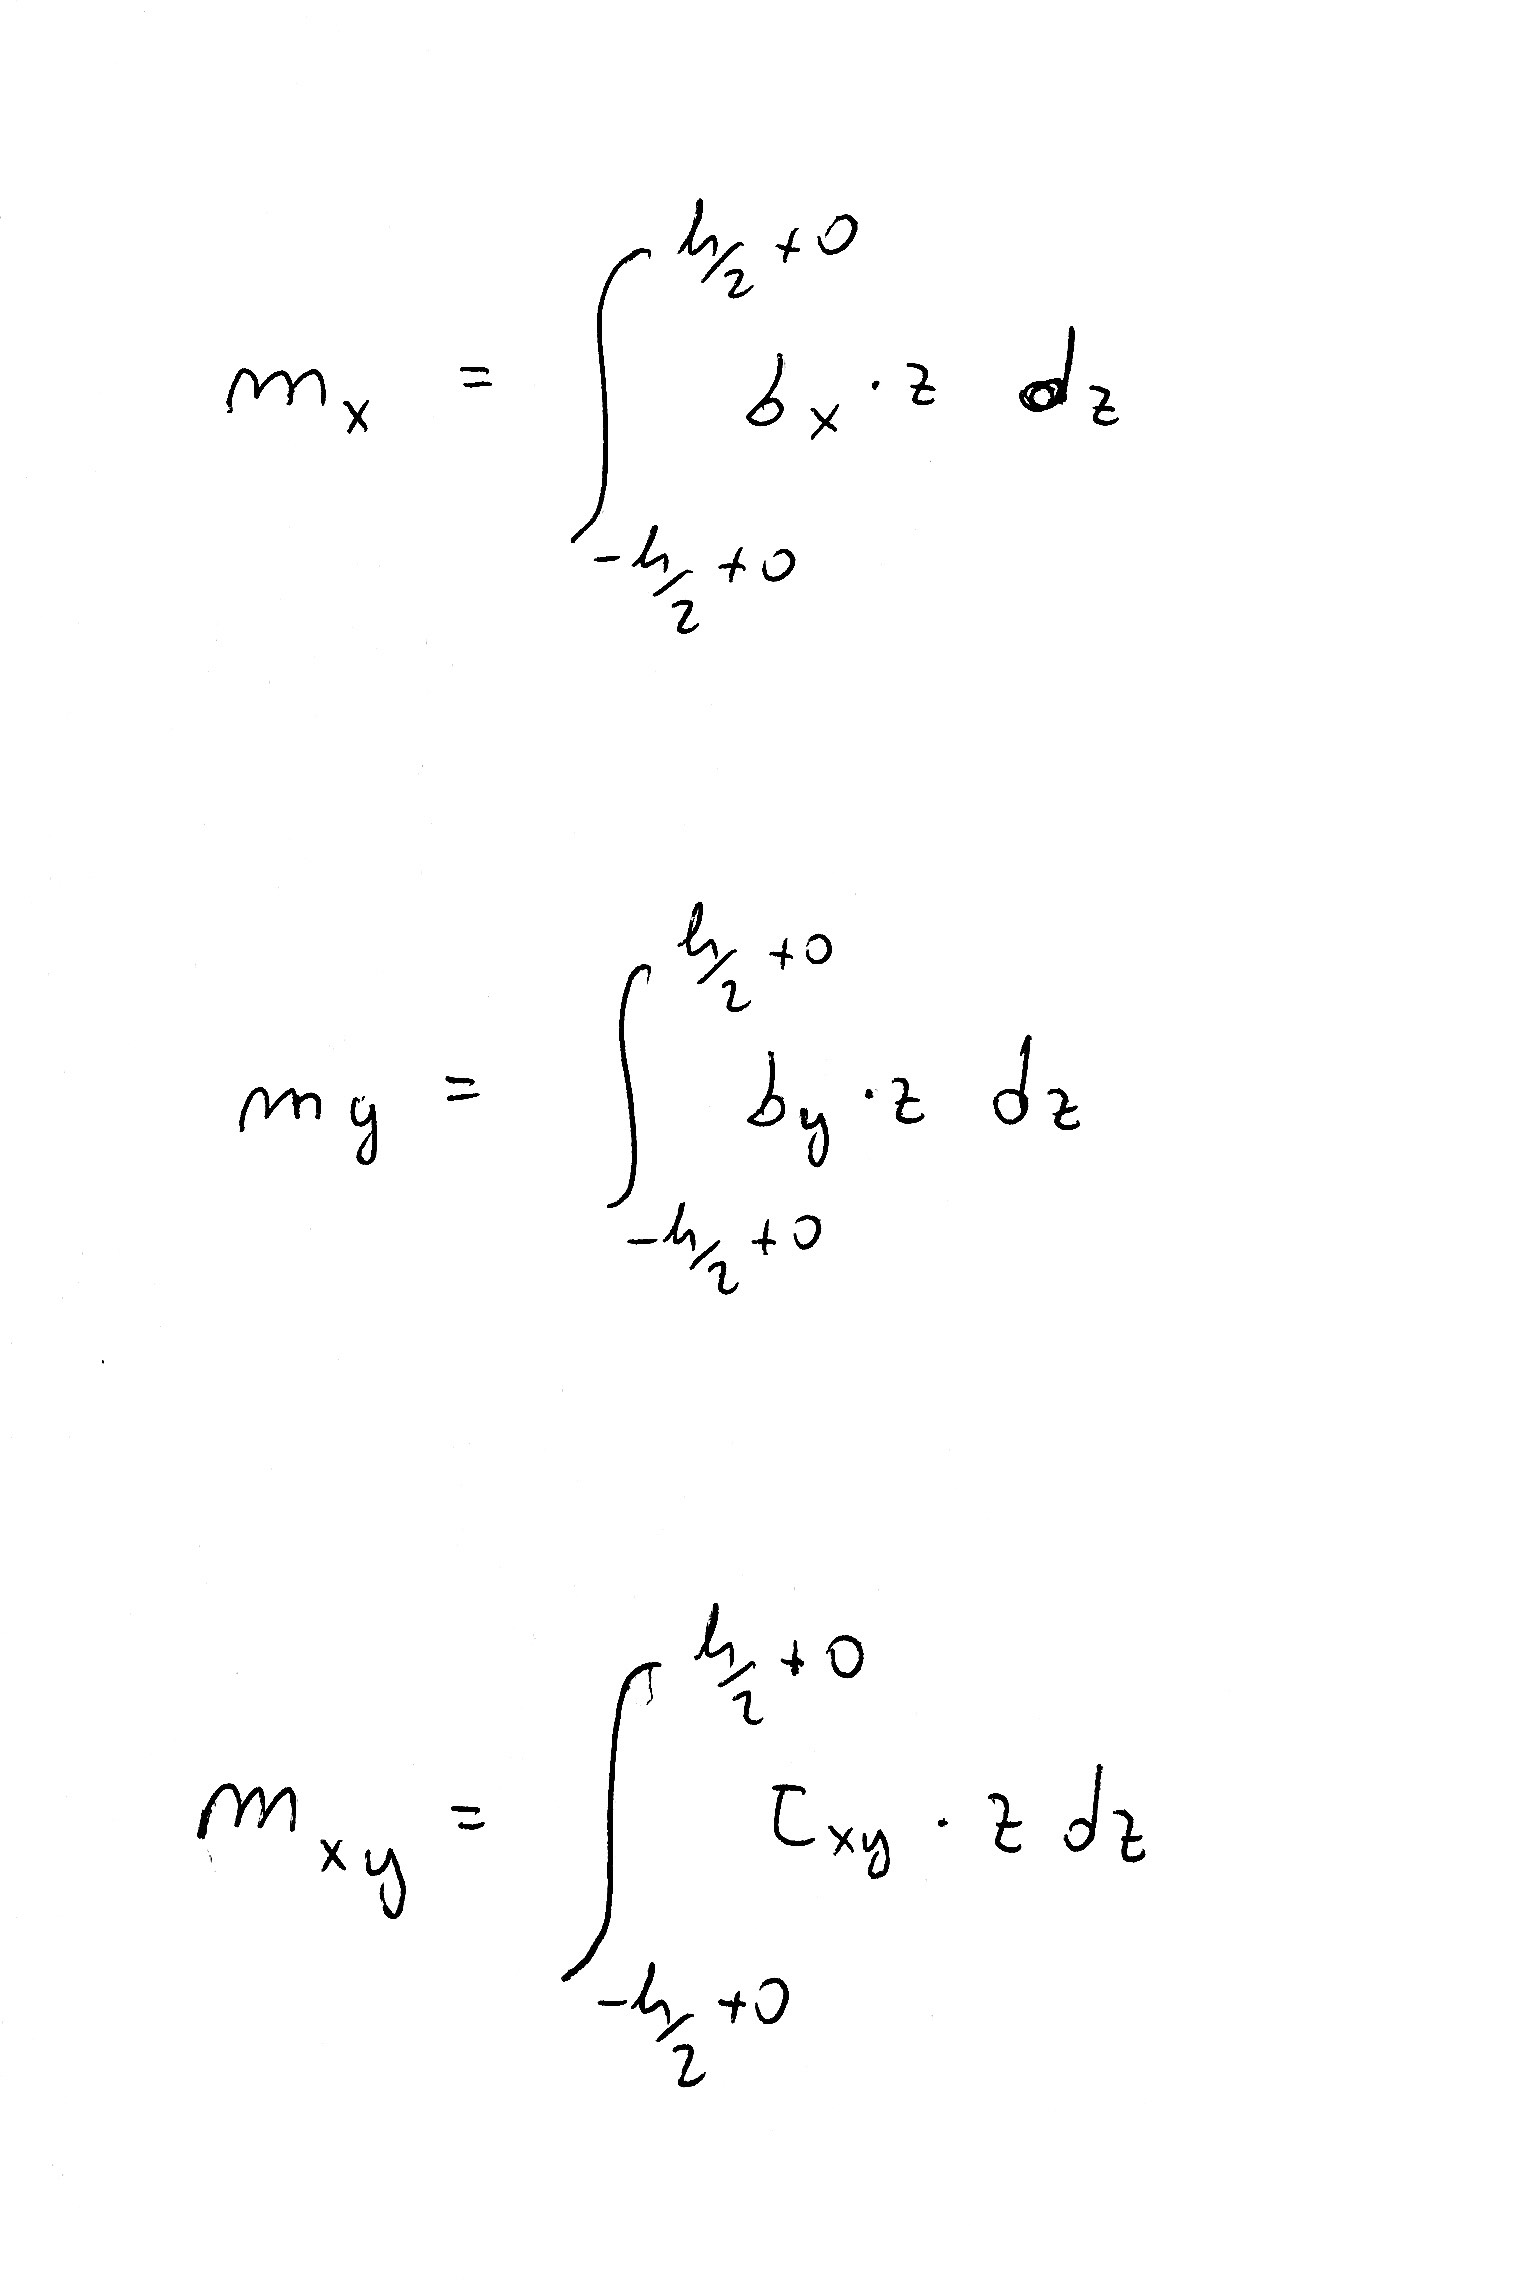 m_x = \int_{-h/2+0}^{h/2+0} б_x · z dz
m_y = \int_{-h/2+0}^{h/2+0} б_y · z dz
m_{xy} = \int_{-h/2+0}^{h/2+0} τ_{xy} · z dz